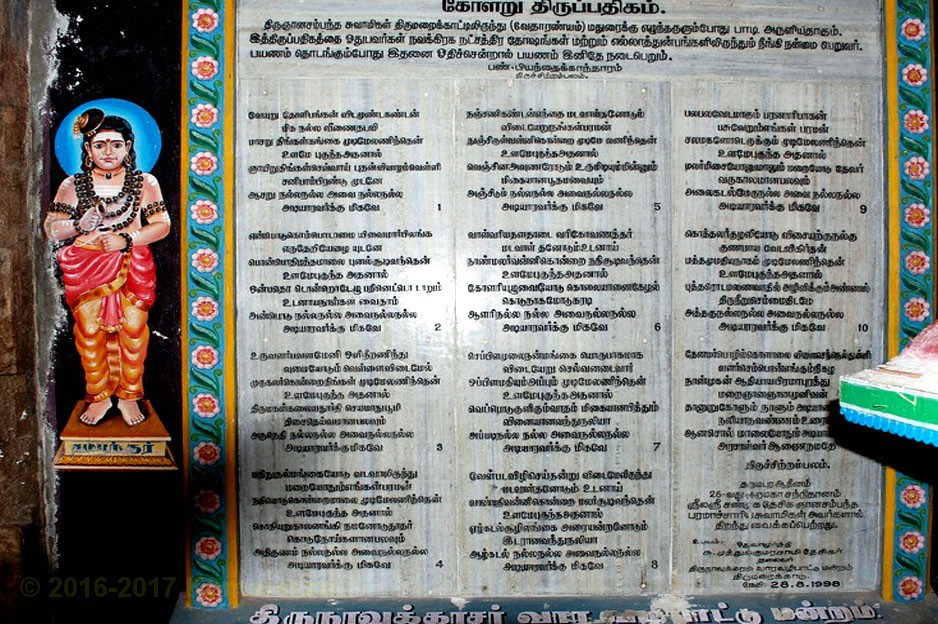 கோளறு திருப்பதிகம்.
திருஞானசம்பந்த சுவாமிகள் திருமறைக்காட்டிலிருந்து (வேதாரண்யம்) மதுரைக்கு எழுந்தருளும்போது பாடி அருளியதாகும்.
இத்திருப்பதிகத்தை ஓதுபவர்கள் நவக்கிரக நட்சத்திர தோஷங்கள் மற்றும் எல்லாத்துன்பங்களிலிருந்தும் நீங்கி நன்மை பெறுவர்.
பயணம் தொடங்கும்போது இதனை ஓதிச்சென்றால் பயணம் இனிதே நடைபெறும்.
பண்-பியந்தைக்காந்தாரம்
திருச்சிற்றம்பலம்.
வேயுறு தோளிபங்கன் விடமுண்டகண்டன்
மிக நல்ல வீணைதடவி
மாசறு திங்கள்கங்கை முடிமேலணிந்தென்
உளமே புகுந்தஅதனால்
ஞாயிறுதிங்கள்செவ்வாய் புதன்வியாழம்வெள்ளி
சனிபாம்பிரண்டு முடனே
ஆசறு நல்லநல்ல அவை நல்லநல்ல
அடியாரவர்க்கு மிகவே 1
என்பொடுகொம்பொடாமை யிவைமார்பிலங்க
எருதேறியேழை யுடனே
பொன்பொதிமத்தமாலை புனல்சூடிவந்தென்
உளமேபுகுந்த அதனால்
ஒன்பதொடு டொன்றொடேழு பதினெட்டொ டாறும்
உடனாயநாள்கள் வைதாம்
அன்பொடு நல்லநல்ல அவைநல்லநல்ல
அடியாரவர்க்கு மிகவே 2
உருவளர்பவளமேனி ஒளிநீறணிந்து
வுமையோடும் வெள்ளைவிடைமேல்
முருகலர்கொன்றைதிங்கள் முடிமேலணிந்தென்
உளமே புகுந்த அதனால்
திருமகள்கலையதூர்தி செயமாதுபூமி
திசைதெய்வமானபலவும்
அருநெதி நல்லநல்ல அவைநல்லநல்ல
அடியாரவர்க்குமிகவே 3
மதிநுதல்மங்கையோடு வடவாலிருந்து
மறையோதும்எங்கள்பரமன்
நதியொடுகொன்றைமாலை முடிமேலணிந்தென்
உளமேபுகுந்த அதனால்
கொதியுறுகாலனங்கி நமனோடுதூதர்
கொடுநோய்களானபலவும்
அதிகுணம் நல்லநல்ல அவைநல்லநல்ல
அடியாரவர்க்கு மிகவே 4
நஞ்சணிகண்டன்எந்தை மடவாள்தனோடும்
விடையேறுநங்கள்பரமன்
துஞ்சிருள்வன்னிகொன்றை முடிமே லணிந்தென்
உளமே புகுந்தஅதனால்
வெஞ்சினஅவுணரோடும் உருமிடியும்மின்னும்
மிகையானபூதமவையும்
அஞ்சிடும் நல்லநல்ல அவைநல்லநல்ல
அடியாரவர்க்கு மிகவே 5
வாள்வரியதளதாடை வரிகோவணத்தர்
மடவாள் தனோடும்உடனாய்
நாண்மலர்வன்னிகொன்றை நதிசூடிவந்தென்
உளமேபுகுந்த அதனால்
கோளரியுழுவையோடு கொலையானைகேழல்
கொடுநாகமோடுகரடி
ஆளரிநல்ல நல்ல அவைநல்லநல்ல
அடியாரவர்க்கு மிகவே 6
செப்பிளமுலைநன்மங்கை யொருபாகமாக
விடையேறு செல்வனடைவார்
ஒப்பிளமதியும்அப்பும் முடிமேலணிந்தென்
உளமே புகுந்தஅதனால்
வெப்பொடுகுளிரும்வாதம் மிகையானபித்தும்
வினையானவந்துநலியா
அப்படிநல்ல நல்ல அவைநல்லநல்ல
அடியாரவர்க்கு மிகவே 7
வேள்படவிழிசெய்தன்று விடைமேலிருந்து
மடவாள்தனோடும் உடனாய்
வாண்மதிவன்னிகொன்றை மலர்சூடிவந்தென்
உளமே புகுந்தஅதனால்
ஏழ்கடல்சூழிலங்கை அரையன்றனோடும்
இடரானவந்துநலியா
ஆழ்கடல் நல்லநல்ல அவைநல்லநல்ல
அடியாரவர்க்கு மிகவே 8
பலபலவேடமாகும் பரனாரிபாகன்
பசுவேறும்எங்கள் பரமன்
சலமகளோடெருக்கும் முடிமேலணிந்தென்
உளமே புகுந்த அதனால்
மலர்மிசையோனுமாலும் மறையோடு தேவர்
வருகாலமானபலவும்
அலைகடல்மேருநல்ல அவை நல்லநல்ல
அடியாரவர்க்கு மிகவே 9
கொத்தலர்குழலியோடு விசையற்குநல்கு
குணமாய வேடவிகிர்தன்
மத்தமுமதியுநாகம் முடிமேலணிந்தென்
உளமேபுகுந்த அதனால்
புத்தரொடமணைவாதில் அழிவிக்கும்அண்ணல்
திருநீறுசெம்மைதிடமே
அத்தகுநல்லநல்ல அவைநல்லநல்ல
அடியாரவர்க்கு மிகவே 10
தேனமர்பொழில்கொளாலை விளைசெந்நெல்துன்னி
வளர்செம்பொன்எங்கும்நிகழ
நான்முகன் ஆதியாயபிரமாபுரத்து
மறைஞானஞானமுனிவன்
தானுறுகோளும் நாளும் அடியாரை
நலியாதவண்ணம் உரைசெய்
ஆனசொல் மாலையோதும் அடியார்கள்
அரசாள்வர் ஆணைநமதே
திருச்சிற்றம்பலம்.
தருமபுர ஆதீனம்
26-வது குருமகா சந்நிதானம்
ஸ்ரீலஸ்ரீ சண்முக தேசிக ஞானசம்பந்த
பரமாச்சாரிய சுவாமிகள் அவர்களால்
திறந்து வைக்கப்பெற்றது.
உபயம்:
தலைவர்
திருநாவுக்கரசர் வாரவழிபாட்டு மன்றம்
திருமறைக்காடு.
தேதி: 28.8.1998
சம்பந்தர்
திருநாவுக்கரசர் வார வழிபாட்டு மன்றம்.
© 2016-2017